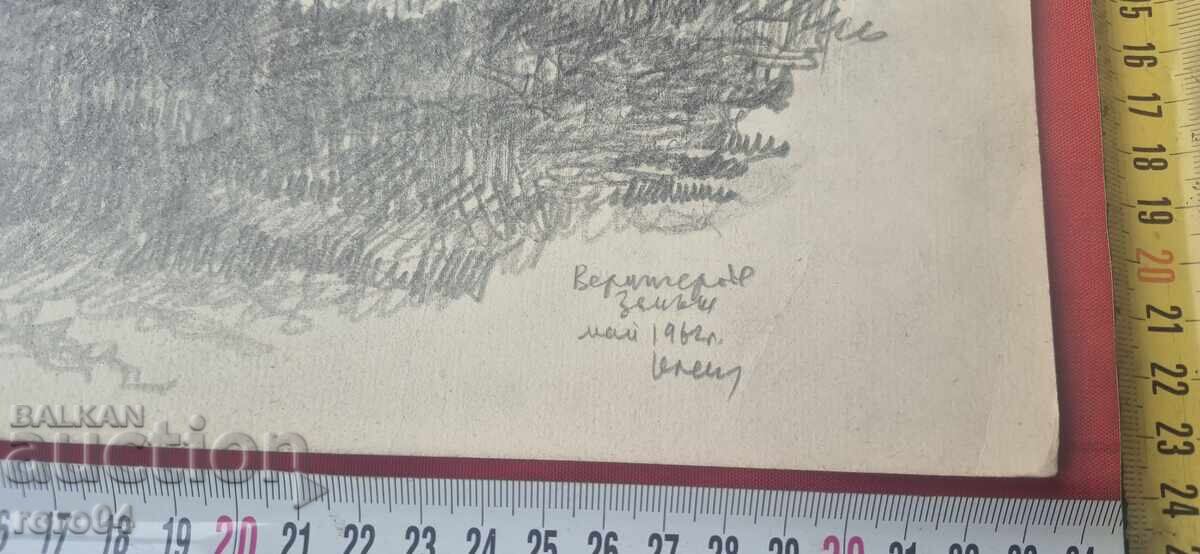 замък
май 1962г.
BALKAN
auction
rqro94
15
16
17
18
19
20
21
22
23
24
16 17 18 19 20 21 22 23 24 25 26 27 28 29 30 31 32 33 34